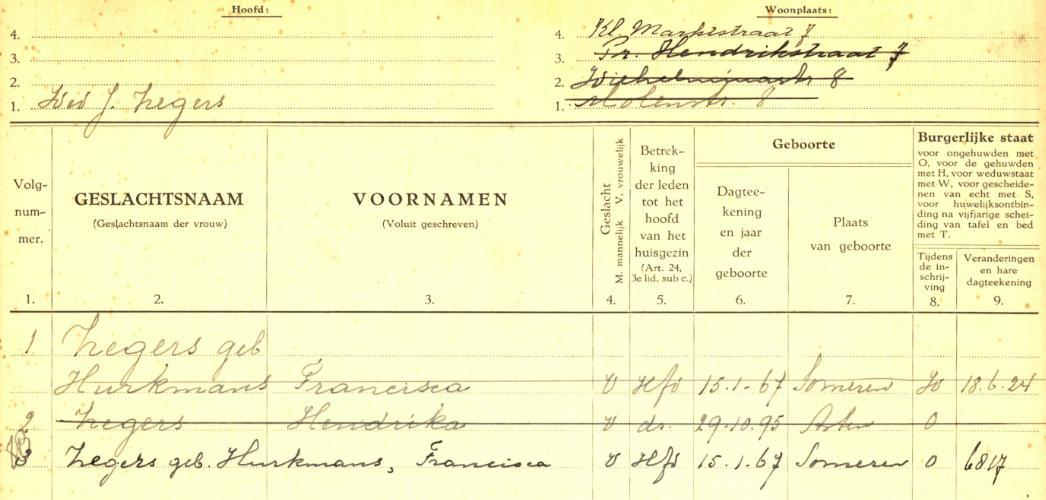 Hoofd:
Woonplaats:
4.
4. Kl. Marktstraat 7
3.
3. Pr. Hendrikstraat 7
2.
2. Wilhelminastr 8
1. Wed J. Zegers
1. Molenstr. 8
Volgnummer.
GESLACHTSNAAM
(Geslachtsnaam der vrouw)
VOORNAMEN
(Voluit geschreven)
Geslacht
M. mannelijk V. vrouwelijk
Betrek-
king
der leden
tot het
hoofd
van het
huisgezin
(Art. 24,
3e lid, sub c.)
Geboorte
Dagtee-
kening
en jaar
der
geboorte
Plaats
van geboorte
Burgerlijke staat
voor ongehuwden met
O, voor de gehuwden
met H, voor weduwstaat
met W, voor gescheide-
nen van echt met S,
voor huwelijksontbin-
ding na vijfjarige schei-
ding van tafel en bed
met T.
Tijdens
de in-
schrij-
ving
Veranderingen
en hare
dagteekening
1. 2. 3. 4. 5. 6. 7. 8. 9.
1 Zegers geb
Hurkmans Francisca v Hfd 15.1.67 Someren 18.6.24
2 Zegers Hendrika v dr. 29.10.95 Asten O
3 Zegers geb. Hurkmans, Francisca v Hfd 15.1.67 Someren O